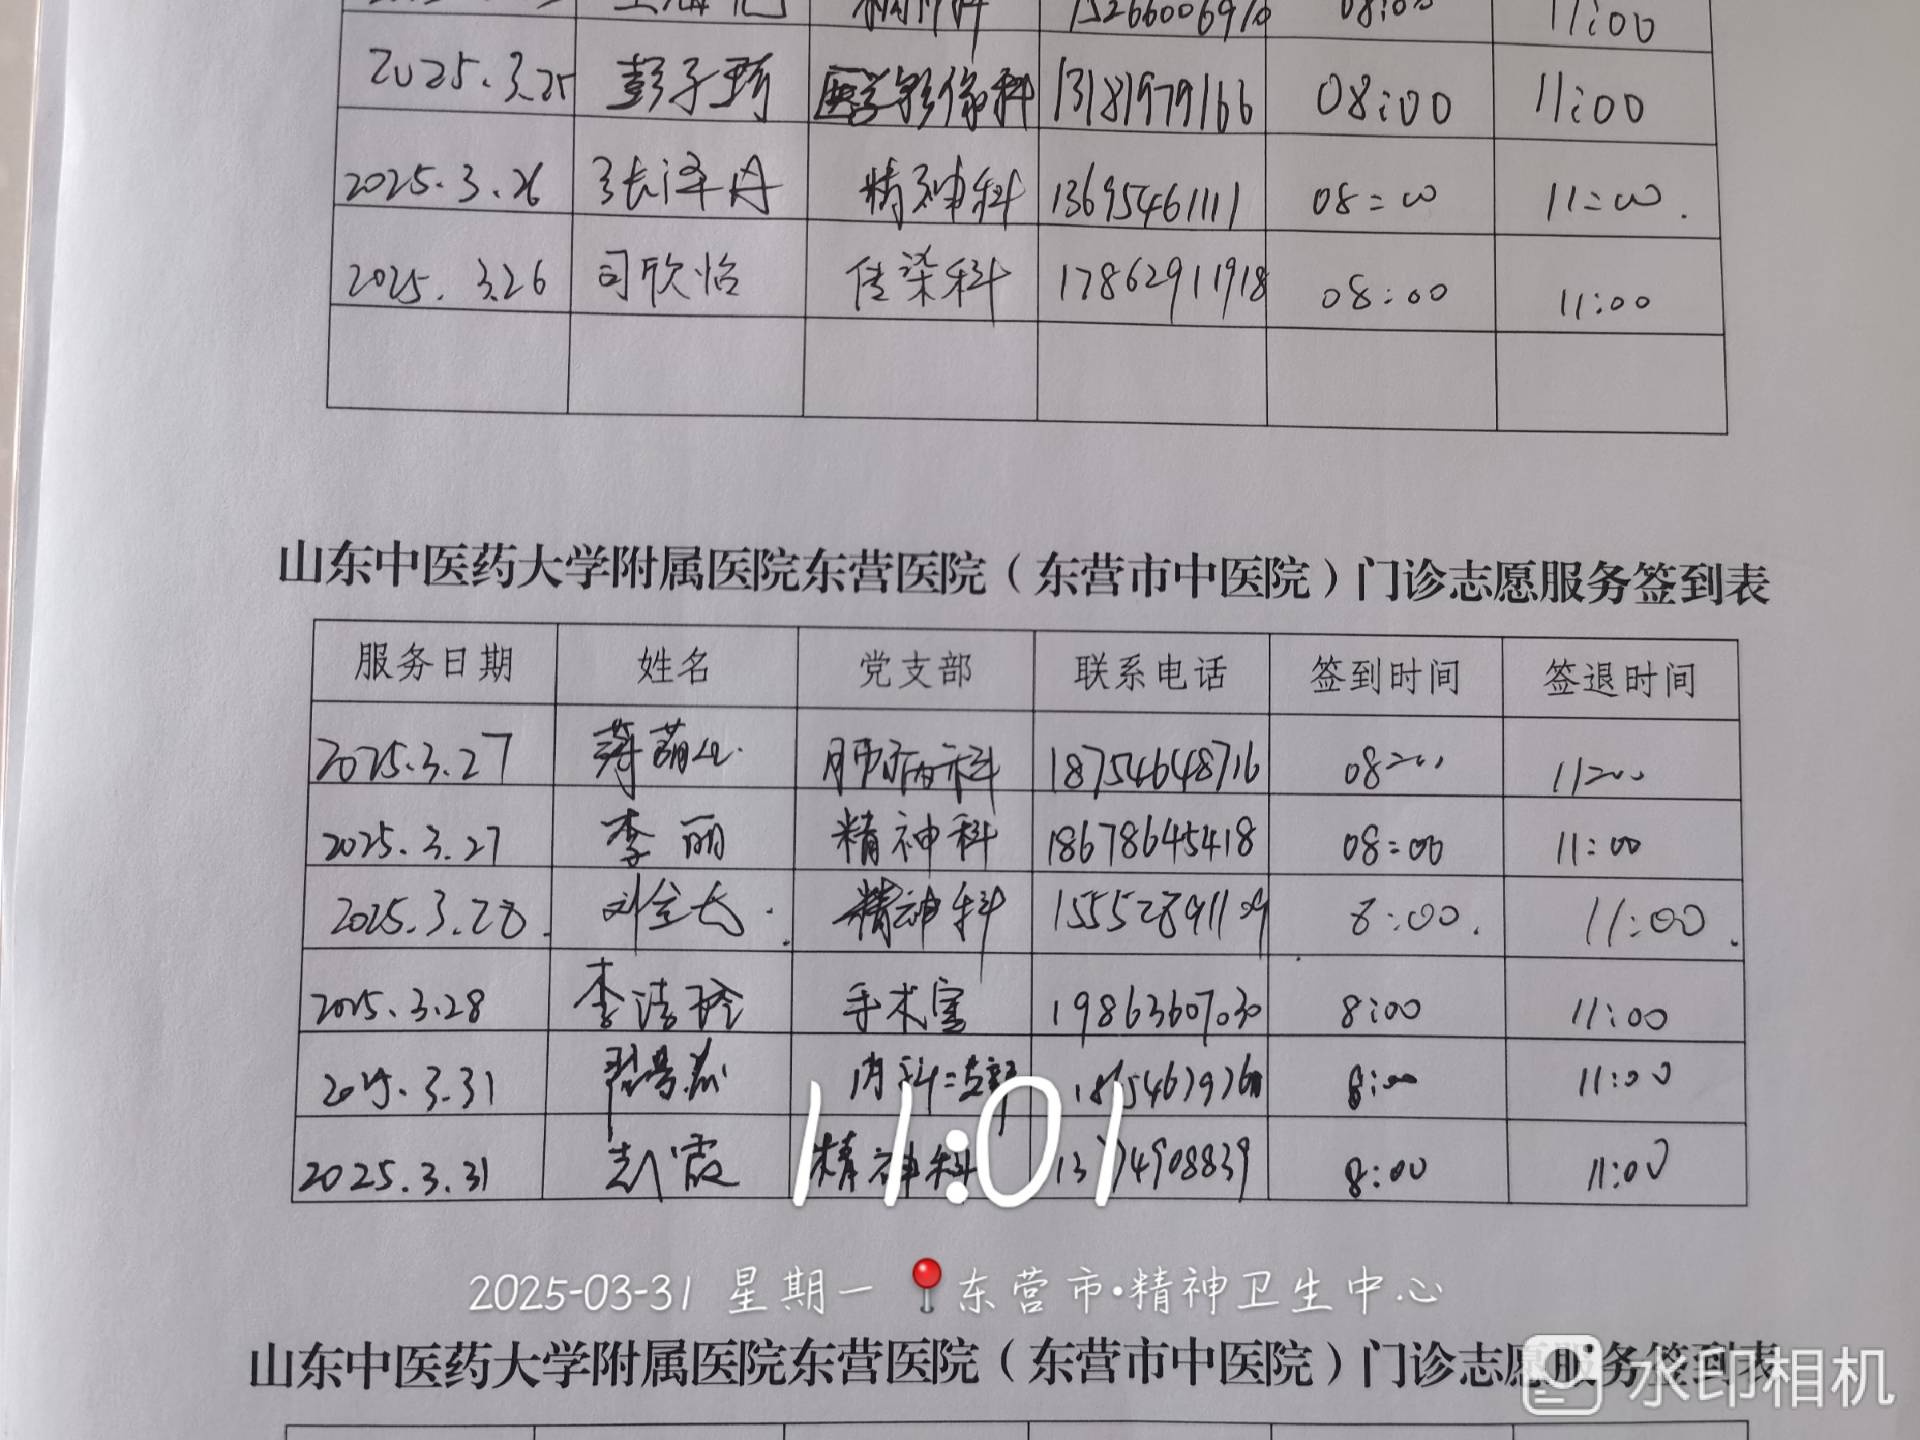 11:00
2025.3.25 彭子琦 医学影像科 13181979166 08:00 11:00
2025.3.26 张泽丹 精神科 13695461111 08:00 11:00.
2025.3.26 司欣怡 传染科 17862911918 08:00 11:00
山东中医药大学附属医院东营医院（东营市中医院）门诊志愿服务签到表
服务日期 姓名 党支部 联系电话 签到时间 签退时间
2025.3.27 肺病科 18754648716 08:00 11:00
2025.3.27 李丽 精神科 18678645418 08:00 11:00
2025.3.28. 精神科 15552891109 8:00. 11:00.
2025.3.28 李洁玲 手术室 19863607030 8:00 11:00
2025.3.31 内科二支部 8:00 11:00
2025.3.31 赵霞 精神科 8:00 11:00
11:01
2025-03-31 星期一 东营市·精神卫生中心
山东中医药大学附属医院东营医院（东营市中医院）门诊志愿服务签到表
水印相机